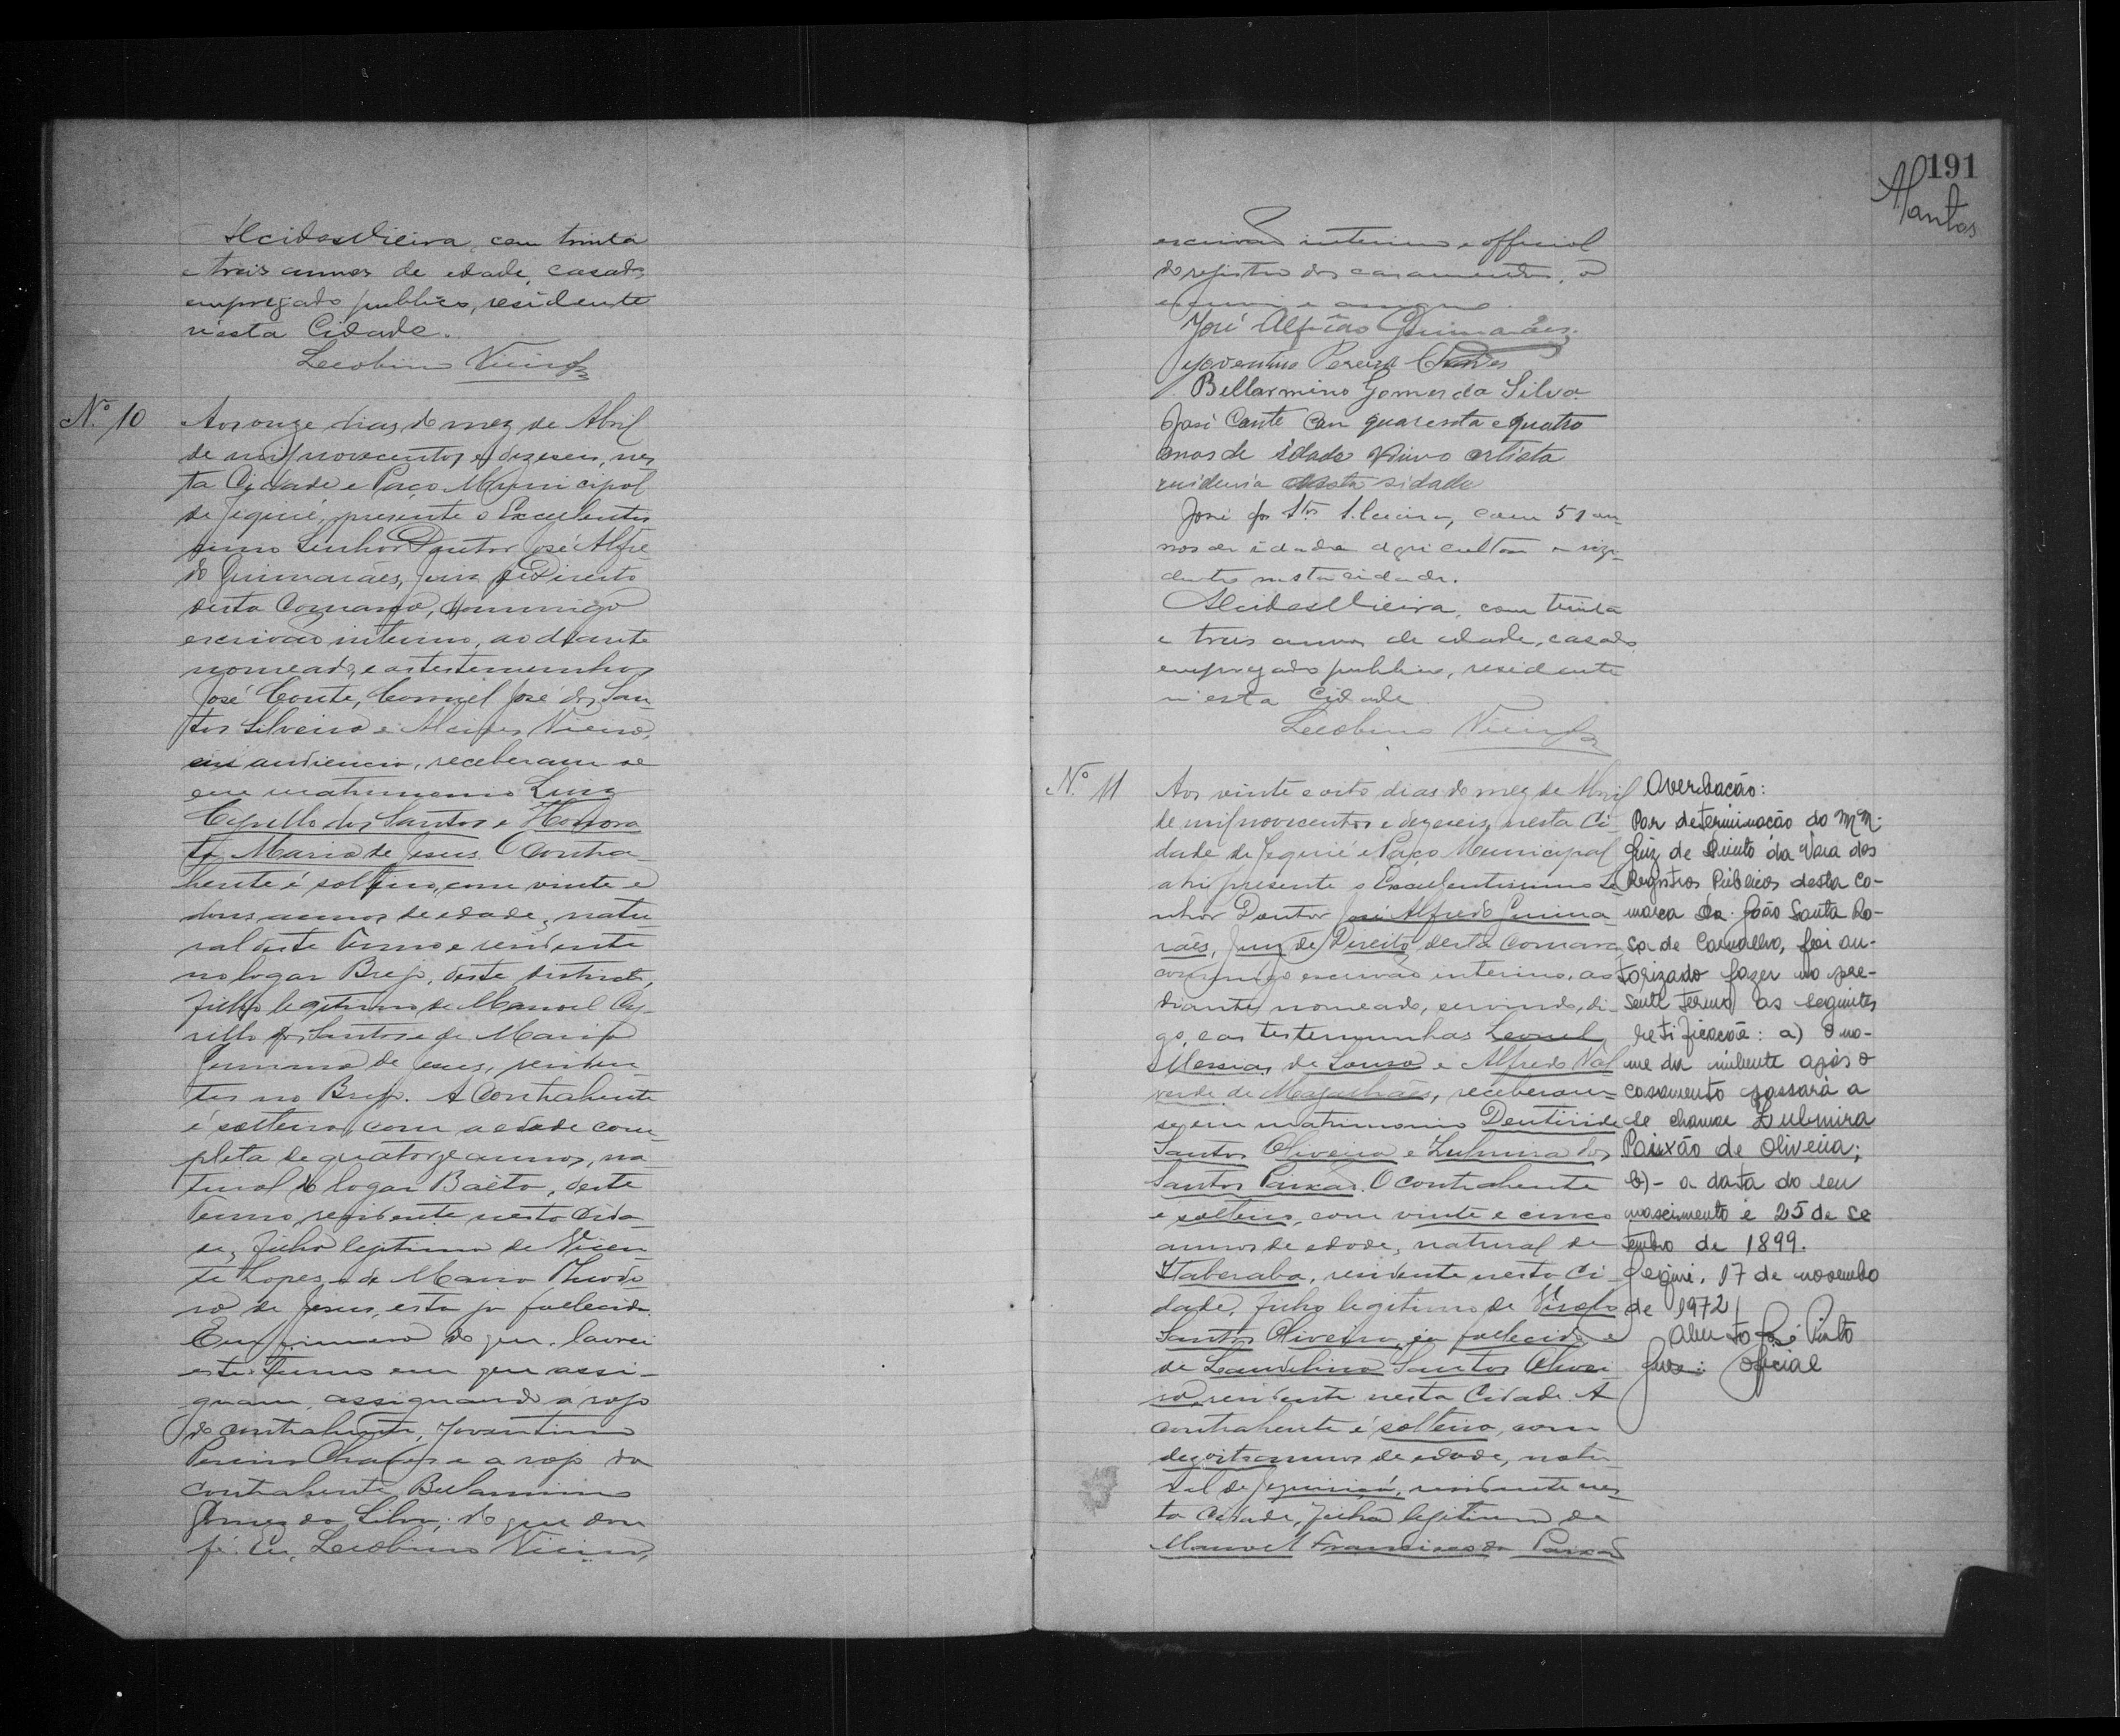 Alcides Vieira, com trinta
e treis annos de edade, casado
empregado publico, residente
n'esta Cidade.
Leolino Vieira
Nº 10
Aos onze dias do mez de Abril
de mil novecentos e dezeseis, nes
ta Cidade e Paço Municipal
de Jequié, presente o Excellentis
simo Senhor Doutor José Alfre
do Guimarães, Juiz de Direito
desta Comarca, commigo
escrivão interino, ao diante
nomeado, e as testemunhas
José Conte, Coronel José dos San
tos Silveira e Alcides Vieira,
em audiencia, receberam-se
em matrimonio Luiz
Cyrillo dos Santos e Honora
ta Maria de Jesus. O Contra
hente é solteiro, com vinte e
dous annos de edade, natu
ral deste Termo e residente
no logar Brejo, deste districto,
filho legitimo de Manoel Cy-
rillo dos Santos e de Maria
de Jesus, residen
tes no Brejo. A Contrahente
é solteira, com a edade com
pleta de quatorze annos, na
tural do logar Baêta, deste
Termo, residente nesta Cida
de, filha legitima de Vicen
te Lopes e de Maria Theodo
ra de Jesus, esta já fallecida.
Em firmeza do que, lavrei
este Termo em que assi-
gnam, assignando a rogo
do contrahente, Joventino
Pereira Chaves e a rogo da
contrahente Bellarmino
Gomes da Silva; do que dou
fé. Eu, Leolino Vieira,
191
escrivão interino e official
do registro dos casamentos, o
escrevi e assigno.
José Alfredo Guimarães.
Joventino Pereira Chaves
Bellarmino Gomes da Silva
José Conte Con quarenta e quatro
anos de idade Viuvo artista
residencia nesta sidade
José dos Stos Silveira, com 51 an
nos de idade agricultor e rezi-
dente nesta cidade.
Alcides Vieira, com trinta
e treis annos de edade, casado,
empregado publico, residente
n'esta Cidade
Leolino Vieira
Nº 11
Aos vinte e oito dias do mez de Abril
de mil novecentos e dezeseis, nesta Ci-
dade de Jequié e Paço Municipal
ahi presente o Excellentissimo Se
nhor Doutor José Alfredo Guima
rães, Juiz de Direito desta Comarca
commigo escrivão interino, ao
diante nomeado, servindo, di-
go, e as testemunhas Leonel
Messias de Souza e Alfredo Val
verde de Magalhães, receberam-
se em matrimonio de
Santos Oliveira e Zulmira dos
Santos Paixão. O contrahente
é solteiro, com vinte e cinco
annos de edade, natural de
Itaberaba, residente nesta Ci-
dade, filho legitimo de
Santos Oliveira, já fallecido e
de Laudelina Santos Olivei
ra, residente nesta Cidade. A
contrahente é solteira, com
dezoito annos de edade, natu
ral de Jequiriçá, residente nes
ta Cidade, filha legitima de
Manoel Francisco da Paixão
Averbação:
Por determinação do MM.
Juiz de Direito da Vara dos
Registros Públicos desta Co-
marca Dr. João Santa Ro-
sa de Carvalho, foi au-
torizado fazer no pre-
sente termo as seguintes
retificação: a) O no-
me da nubente após o
casamento passará a
se chamar Zulmira
Paixão de Oliveira;
b) - a data do seu
nascimento é 25 de Se
tembro de 1899.
Jequié, 17 de novembro
de 1972
Pinto
Oficial